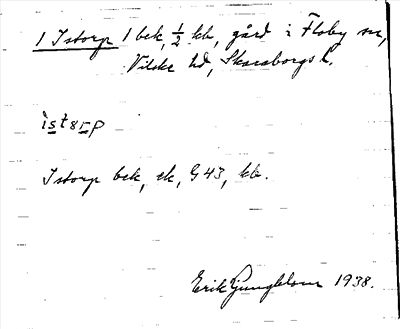 1 Istorp 1 bek, ½ kb, gård i Floby sn,
Vilske hd, Skaraborgs l.
ìstꞛrp
Istorp bek, ek, G 43, kb.
Erik Ljungblom 1938.